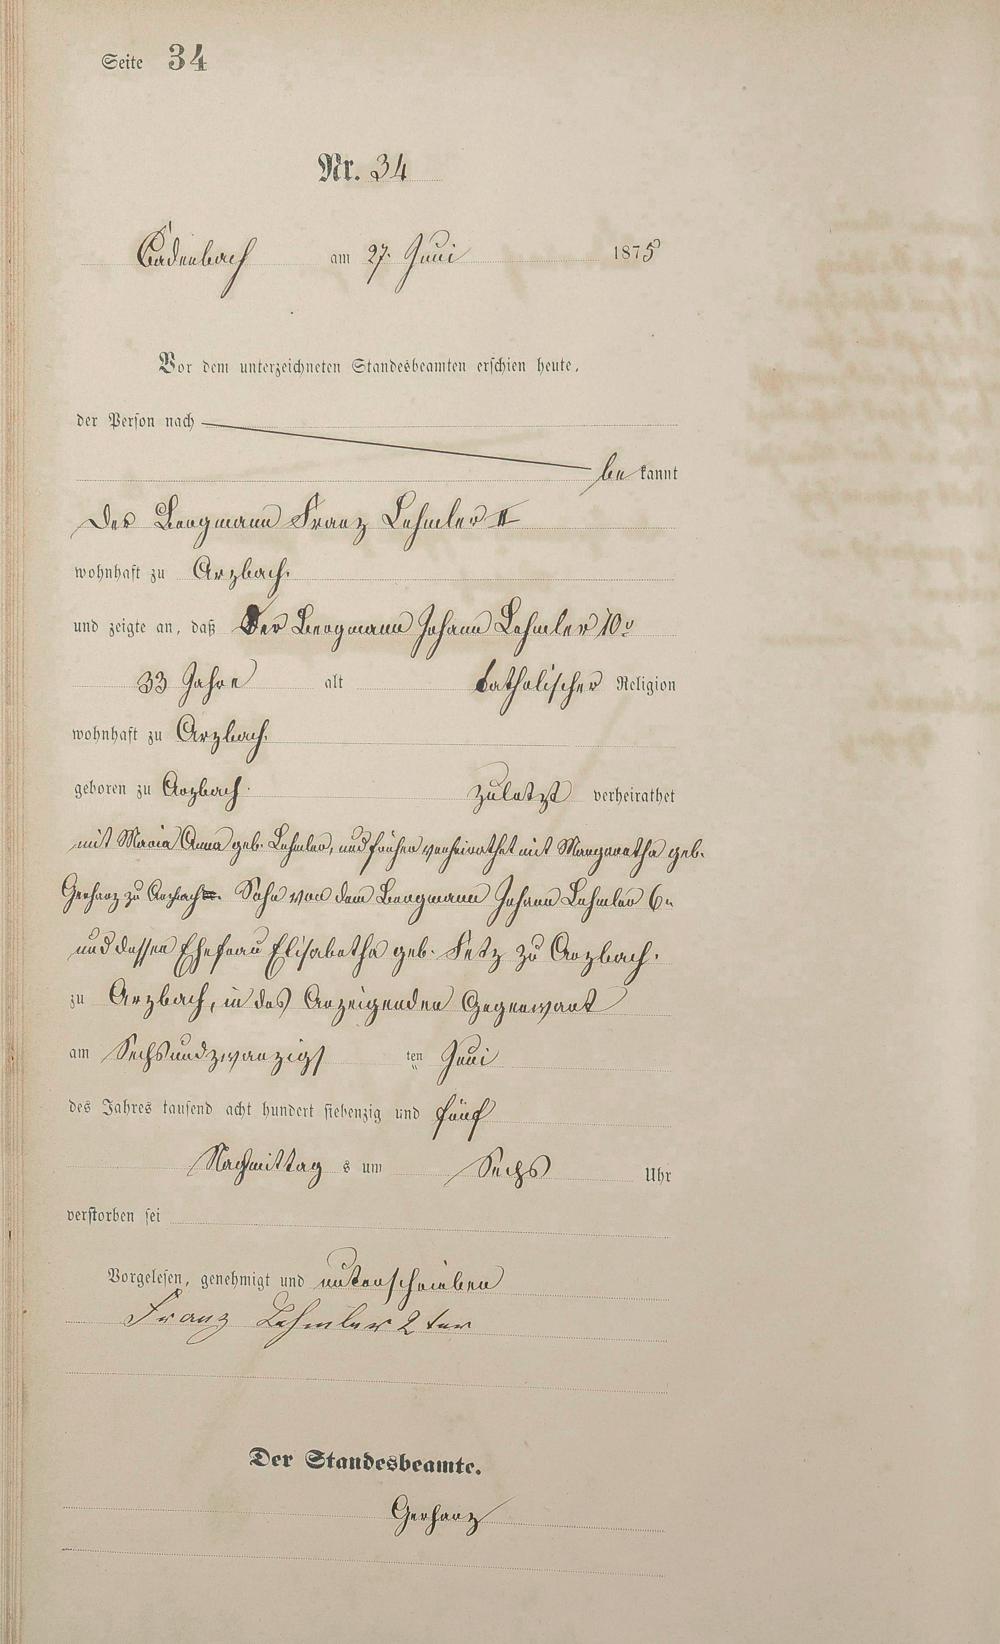 Seite 34
Nr. 34
Cadenbach am 27. Juni 1875
Vor dem unterzeichneten Standesbeamten erschien heute,
der Person nach
be kannt
Der Bergmann Franz Lehmler II
wohnhaft zu Arzbach.
und zeigte an, daß Der Bergmann Johann Lehmler 10r
33 Jahre alt katholischer Religion
wohnhaft zu Arzbach.
geboren zu Arzbach. zuletzt verheirathet
mit Maria Anna geb. Lehmler, und früher verheirathet mit Margaretha geb.
Gerharz zu Arzbach. Sohn von dem Bergmann Johann Lehmler 6n
und dessen Ehefrau Elisabetha geb. Fetz zu Arzbach.
zu Arzbach, in des Anzeigenden Gegenwart
am Sechsundzwanzigs ten Juni
des Jahres tausend acht hundert siebenzig und fünf
Nachmittag s um Sechs Uhr
verstorben sei
Vorgelesen, genehmigt und unterschrieben
Franz Lehmler 2ter
Der Standesbeamte.
Gerharz